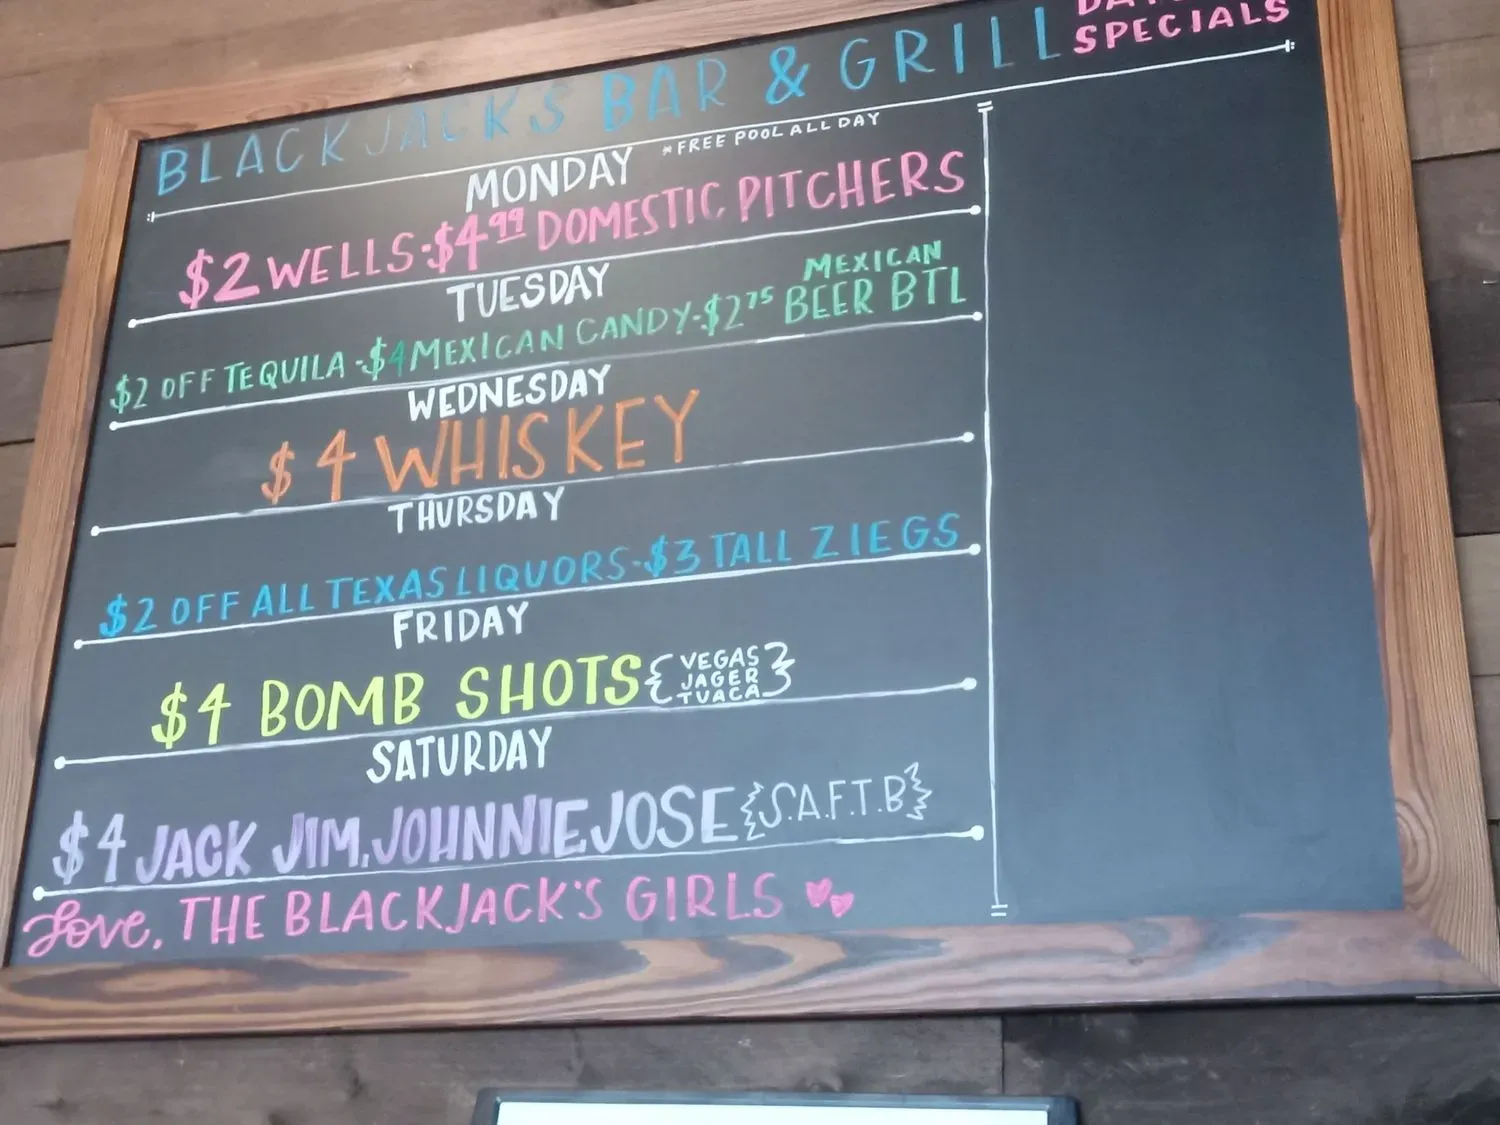 BLACKJACK'S BAR & GRILL
SPECIALS
MONDAY *FREE POOL ALL DAY
$2 WELLS-$4.99 DOMESTIC PITCHERS
TUESDAY
$2 OFF TEQUILA-$4 MEXICAN CANDY-$2.75 MEXICAN BEER BTL
WEDNESDAY
$4 WHISKEY
THURSDAY
$2 OFF ALL TEXAS LIQUORS-$3 TALL ZIEGS
FRIDAY
$4 BOMB SHOTS {VEGAS
JAGER
TUACA}
SATURDAY
$4 JACK JIM, JOHNNIE JOSE {S.A.F.T.B}
Love, THE BLACKJACK'S GIRLS